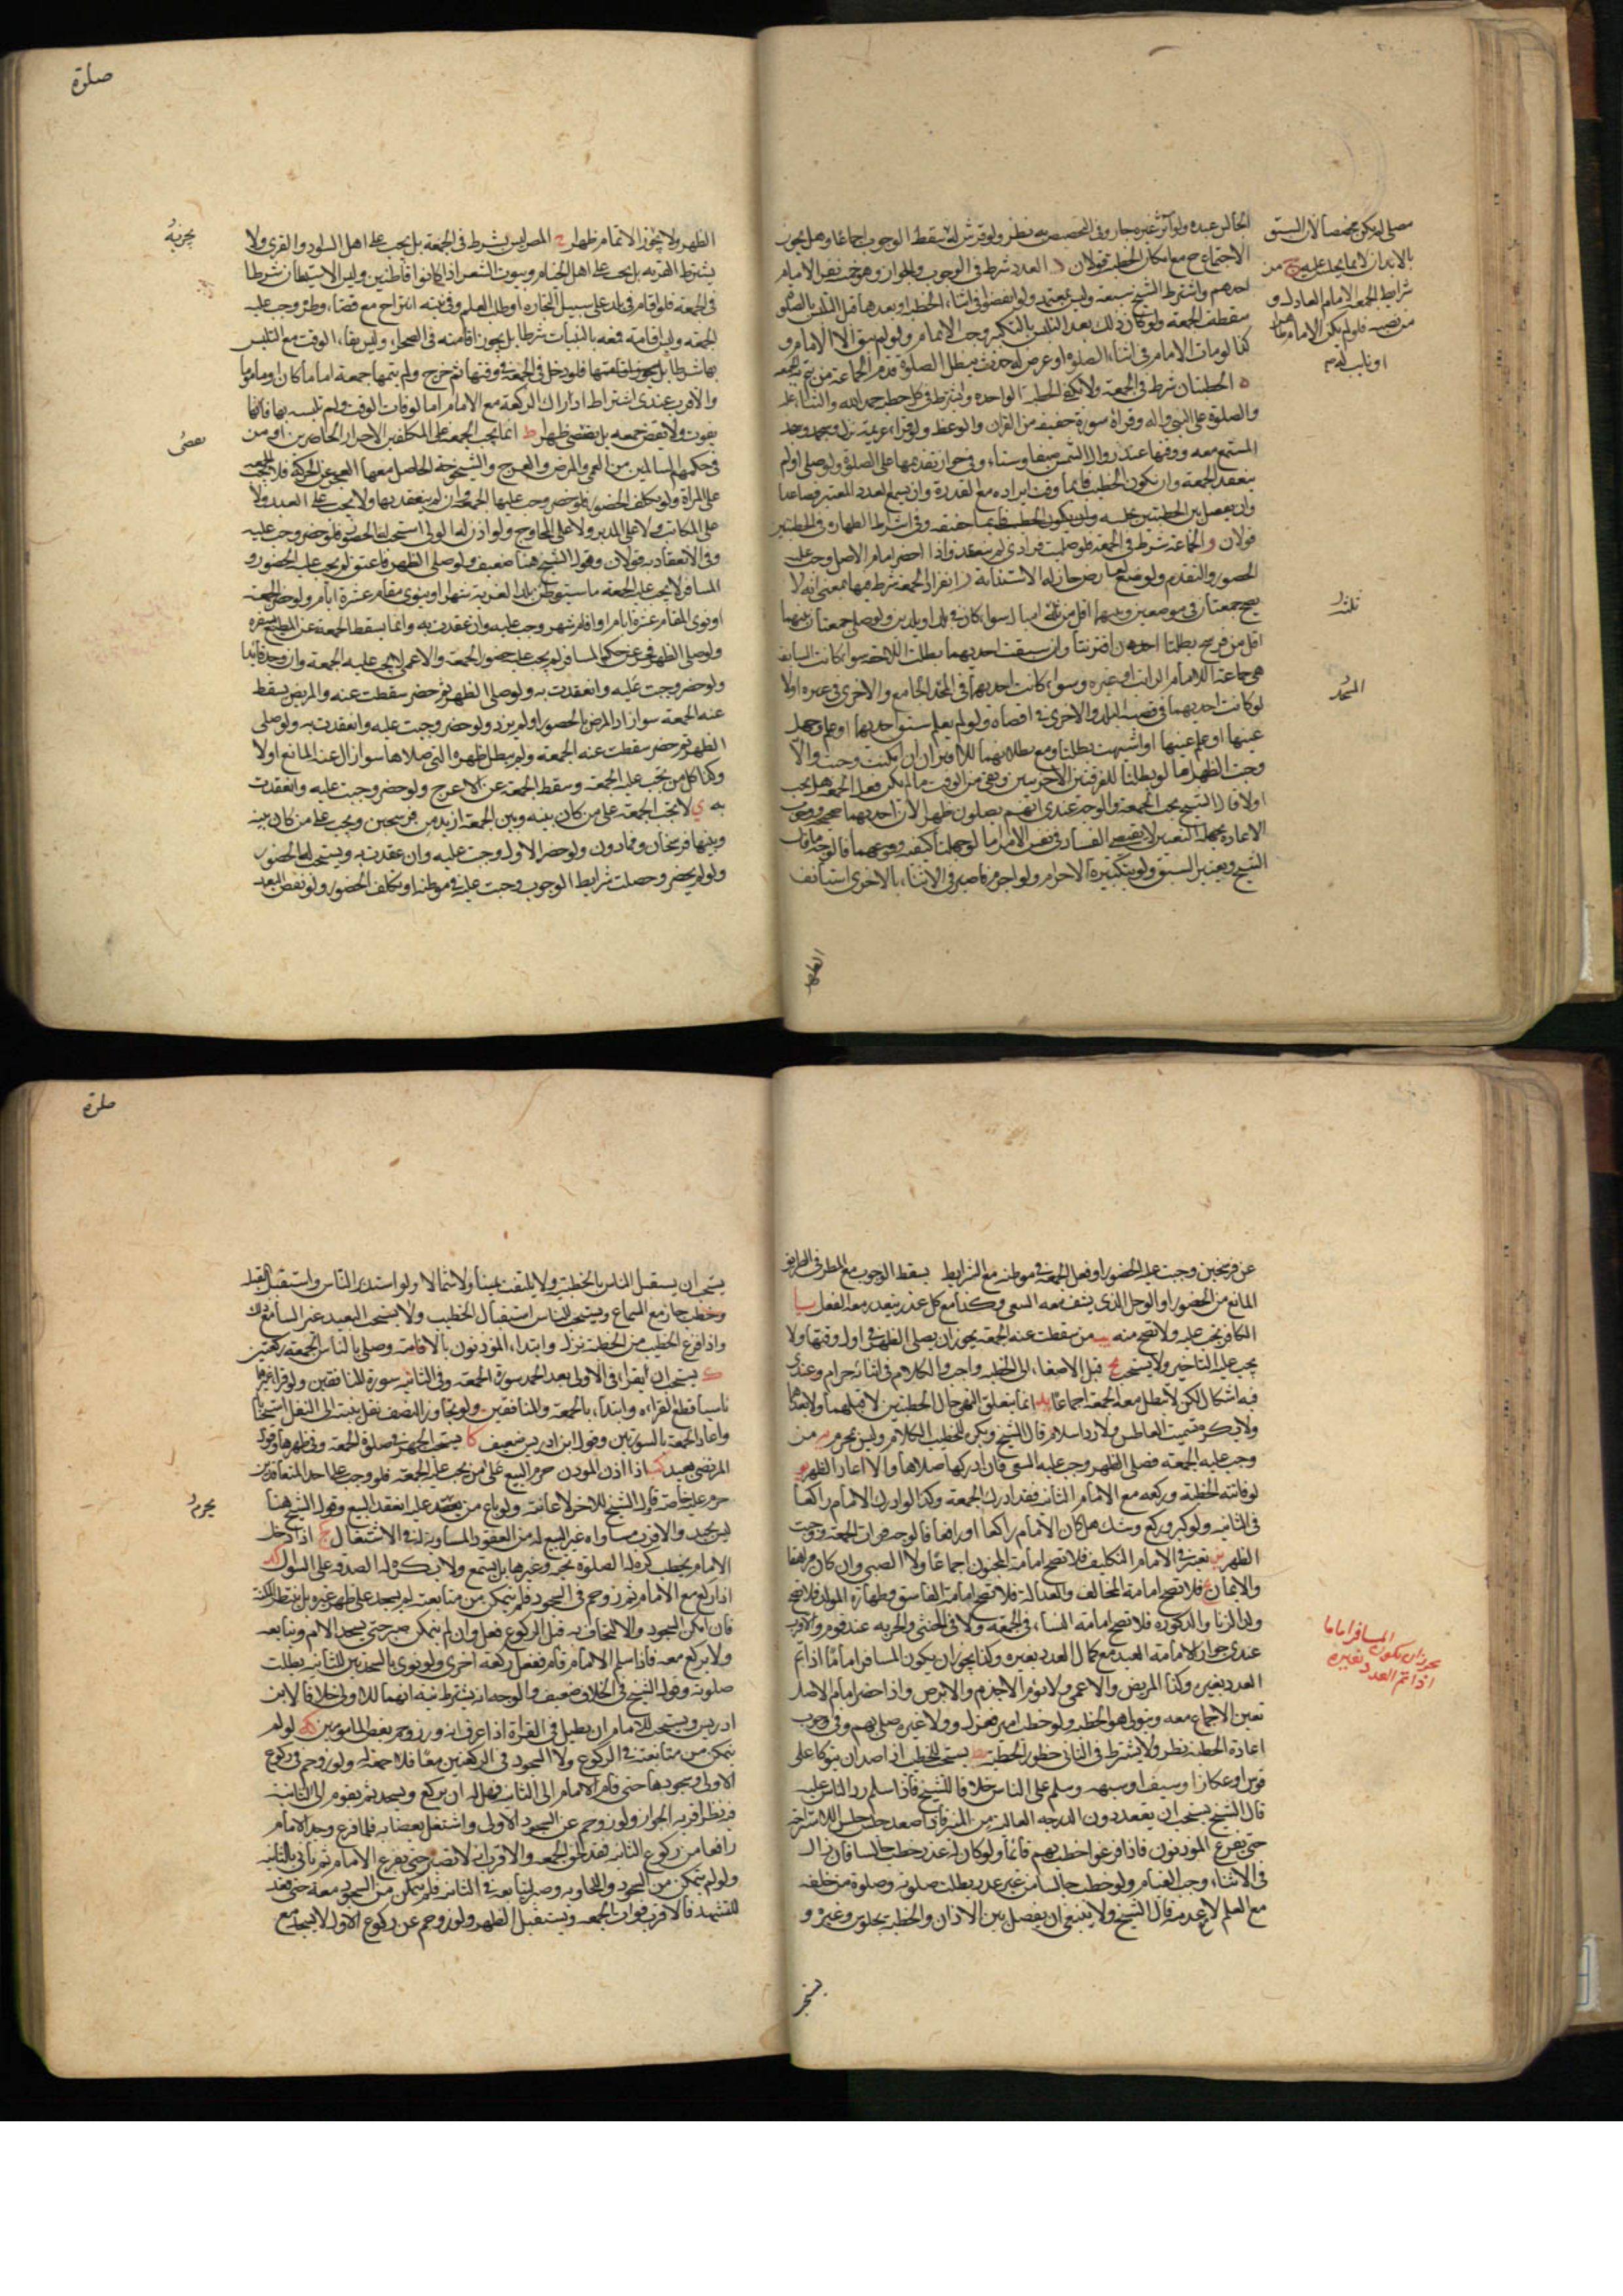 صلوة
مصلى لم يكن مخصصا لان السبق
بالابدان لا بما يجلس عليه ج من
شرايط الجمعة الامام العادل او
من نصبه فلو لم يكن الامام ظاهرا
او نايب له
الاجتماع ح مع امكان الخطبة قولان د العدد شرط في الوجوب والجواز وهو خمسة نفر الامام
احدهم واشترط الشيخ سبعة وليس بمعتمد ولو انفضوا في اثناء الخطبة او بعدها قبل التلبس بالصلوة
سقطت الجمعة ولو كان ذلك بعد التلبس بالتكبير وجب الاتمام ولو لم يبق الا الامام و
كذا لو مات الامام في اثناء الصلوة او عرض له حدث يبطل الصلوة قدم الجماعة من يتم بهم الجمعة
ه الخطبتان شرط في الجمعة ولا تكفي الخطبة الواحدة ويشترط في كل خطبة حمد الله والثناء عليه
والصلوة على النبي واله وقراءة سورة خفيفة من القران والوعظ ولو قراء عزيمة نزل وسجد وسجد
المستمع معه ووقتها عند زوال الشمس
ينعقد الجمعة وان يكون الخطيب قائما وقت ايراده مع القدرة وان يسمع العدد المعتبر فصاعدا
وان يفصل بين الخطبتين بجلسة وان يكون الخطيب وفي اشتراط الطهارة في الخطبتين
قولان و الجماعة شرط في الجمعة فلو صليت فرادى لم ينعقد واذا حضر امام الاصل وجب عليه
الحضور والتقدم ولو منع لعارض جاز له الاستنابة ز انفراد الجمعة شرط فيها بمعنى انه لا
يصح جمعتان في موضعين بينهما اقل من ثلثة اميال سواء كان في بلد او بلدين ولو صلى جمعتان بينهما
اقل من فرسخ بطلتا احدهن ان اقترنتا وان سبقت احديهما بطلت اللاحقة سواء كانت السابقة
هي جماعة الامام الراتب او غيره وسواء كانت احديهما في المسجد الجامع والاخرى في غيره او لا
لو كانت احديهما في قصبة البلد والاخرى في اقصاه ولو لم يعلم سبق احديهما او علم وجهل
عينها او علم عينها او اشتبهت بطلتا ومع بطلانهما للاقتران ان امكنت وجبت والا
وجبت الظهر اما لو بطلتا للفرقتين الاخيرتين وبقي من الوقت ما يمكن فعل الجمعة هل يجب
او لا قال الشيخ يجب الجمعة والوجه عندي انهم يصلون ظهرا لان احديهما صحيحة ووجوب
الاعادة بجهالة التعيين لا يقتضي الفساد في نفس الامر اما لو جهلنا كيفية وقوعهما فالوجه ما قاله
الشيخ ويعتبر السبق ولو بتكبيرة الاحرام ولو احرم فاخبر في الاثناء بالاخرى استأنف
الظهر
الظهر ولا يجوز الاتمام ظهرا ح المصر ليس بشرط في الجمعة بل يجب على اهل السواد والقرى ولا
يشترط القرية بل يجب على اهل الخيام وبيوت الشعر اذا كانوا قاطنين وليس الاستيطان شرطا
في الجمعة فلو اقام في بلد على سبيل التجارة او طلب العلم وفي نيته انتزاح مع قضاء وطره وجب عليه
الجمعة وليس اقامته في البنيات شرطا بل يجوز اقامته في الصحراء وليس بقاء الوقت مع التلبس
بها شرطا بل يجوز اقامتها فلو دخل في الجمعة في وقتها ثم خرج ولم يتمها جمعة اماما كان او ماموما
والاقرب عندي اشتراط ادراك الركعة مع الامام اما لو فات الوقت ولم تلبس بها فانها
يفوت ولا يقضى جمعة بل يقضى ظهرا ط انما يجب الجمعة على المكلفين الاحرار الحاضرين او من
في حكمهم السالمين من العمى والمرض والعرج والشيخوخة الحاصل معها العجز عن الحركة فلا يجب الجمعة
على المراة ولو تكلف الحضور فلو حضر وجب عليها الجمعة وان لم ينعقد بها ولا يجب على العبد ولا
على المكاتب ولا على المدبر ولا على المحاوج ولو اذن له المولى استحب له الحضور فلو حضر وجب عليه
وفي الانعقاد به قولان وقول الشيخ هنا ضعيف ولو صلى الظهر فاعتق لم يجب عليه الحضور و
المسافر لا يجب عليه الجمعة ما لم يستوطن بلد الغربة شهرا او ينوي مقام عشرة ايام ولو حضر الجمعة
او نوى المقام عشرة ايام او اقام شهرا وجب عليه وان عقدت به وانما يسقط الجمعة عن المبيح سفره
ولو حضر وجبت عليه وانعقدت به ولو صلى الظهر ثم حضر سقطت عنه والمريض يسقط
عنه الجمعة سواء زاد المرض بالحضور او لم يزد ولو حضر وجبت عليه وانعقدت به ولو صلى
الظهر ثم حضر سقطت عنه الجمعة ولم يبطل ظهره التي صلاها سواء زال عنه المانع او لا
وكذا كل من يجب عليه الجمعة وسقط الجمعة عن الاعرج ولو حضر وجبت عليه وانعقدت
به ي لا تجب الجمعة على من كان بينه وبين الجمعة ازيد من فرسخين ويجب على من كان بينه
وبينها فرسخان فما دون ولو حضر الاول وجبت عليه وان عقدت به ويستحب له الحضور
ولو لم يحضر وحصلت شرايط الوجوب وجبت عليه في موطنه او تكلف الحضور ولو نقص البعد
صلوة
عن فرسخين وجبت عليه الحضور او فعل الجمعة في موطنه مع الشرايط يسقط الوجوب مع المطر في الطريق
المانع من الحضور او الوحل الذي يشق معه السعي وكذا مع كل عذر يتعذر معه الفعل يا
الكافر تجب عليه ولا تصح منه يب من سقطت عنه الجمعة يجوز ان يصلي الظهر في اول وقتها ولا
يجب عليه التاخير ولا يستحب يج قيل الاصغاء الى الخطبة واجب والكلام في اثنائه حرام وعندي
فيه اشكال لكن لا تبطل معه الجمعة اجماعا يد انما يتعلق النهي حال الخطبتين لا قبلهما ولا بعدهما
ولا يكره تسميت العاطس ولا رد السلام قال الشيخ ويكره للخطيب الكلام وليس بمحرم يه من
وجب عليه الجمعة فصلى الظهر وجب عليه السعي فان ادركها صلاها والا اعاد الظهر يو
لو فاتته الخطبة وركعة مع الامام الثانية فقد ادرك الجمعة وكذا لو ادرك الامام راكعا
في الثانية ولو كبر وركع وشك هل كان الامام راكعا او رافعا فالوجه فوات الجمعة ووجبت
الظهر يز يعتبر في الامام التكليف فلا تصح امامة المجنون اجماعا ولا الصبي وان كان مراهقا
والايمان فلا تصح امامة المخالف والعدالة فلا تصح امامة الفاسق وطهارة المولد فلا تصح
ولد الزنا والذكورة فلا تصح امامة النساء في الجمعة ولا في الخنثى والحرية عند قوم والاقرب
عندي جواز امامة العبد مع كمال العدد بغيره وكذا يجوز ان يكون المسافر اماما اذا تم
العدد بغيره وكذا المريض والاعمى ولا يؤم الاجذم والابرص واذا حضر امام الاصل
تعين الاجتماع معه وتولى هو الخطبة ولو خطب امير فعزل وولى غيره صلى بهم وفي وجوب
اعادة الخطبة نظر ولا يشترط في الثاني حضور الخطبة يط يستحب للخطيب اذا صعد ان يتوكا على
قوس او عكاز او سيف او شبهه وسلم على الناس خلافا للشيخ فاذا سلم رد الناس عليه
قال الشيخ يستحب ان يقعد دون الدرجة العالية من المنبر فاذا صعد جلس للاستراحة
حتى يفرغ المؤذنون فاذا فرغوا خطب بهم قائما ولو كان له عذر خطب جالسا فان زال
في الاثناء وجب القيام ولو خطب جالسا من غير عذر بطلت صلوته وصلوة من خلفه
مع العلم لا مع عدمه قال الشيخ ولا ينبغي ان يفصل بين الاذان والخطبة بجلوس وغيره و
يجوز ان يكون المسافر اماما
اذا تم العدد بغيره
يستحب ان يستقبل الناس بالخطبة ولا يلتفت يمينا ولا شمالا ولو استدبر الناس واستقبل القبلة
وخطب جاز مع السماع ويستحب للناس استقبال الخطيب ولا يستحب للبعيد غير السامع ذلك
واذا فرغ الخطيب من الخطبة نزل وابتداء المؤذنون بالاقامة وصلى بالناس الجمعة ركعتين
ك يستحب ان يقراء في الاولى بعد الحمد سورة الجمعة وفي الثانية سورة المنافقين ولو قراء غيرهما
ناسيا قطع القراءة وابتداء بالجمعة والمنافقين ولو تجاوز النصف نقل بنيته الى النفل استحبابا
واعاد الجمعة بالسورتين وقول ابن ادريس ضعيف كا يستحب الجهر في صلوة الجمعة وفي ظهرها وقول
المرتضى بعيد كب اذا اذن المؤذن حرم البيع على من يجب عليه الجمعة فلو وجب على احد المتعاقدين
حرم عليه خاصة قال الشيخ للاخر لاعانته ولو باع من يحرم عليه انعقد البيع وقول الشيخ هنا
ليس بجيد والاقرب مساواة غير البيع له من العقود المساوية له في الاشتغال كج اذا دخل
الامام يخطب كره له الصلوة تحية وغيرها بل يستمع ولا يكره له الصدقة على السوال كد
اذا ركع مع الامام ثم زوحم في السجود فلم يتمكن من متابعته لم يسجد على ظهر غيره بل ينتظر المكنة
فان امكن السجود والالتحاق به قبل الركوع فعل وان لم يتمكن صبر حتى يسجد الامام ويتابعه
ولا يركع معه فاذا سلم الامام قام ففعل ركعة اخرى ولو نوى بالسجدتين للثانية بطلت
صلوته وقول الشيخ في الخلاف ضعيف والوجه انه يشترط نية انهما للاولى خلافا لابن
ادريس ويستحب للامام ان يطيل في القراءة اذا عرف انه زوحم بعض المامومين كه لو لم
يتمكن من متابعته في الركوع ولا السجود في الركعتين معا فلا جمعة له ولو زوحم في ركوع
الاولى وسجودها حتى قام الامام الى الثانية فهل له ان يركع ويسجد ثم يقوم الى الثانية
فيه نظر اقربه الجواز ولو زوحم عن السجود الاولى واشتغل بقضائه فلما فرغ وجد الامام
رافعا من ركوع الثانية فقد لحق الجمعة والاقرب انه لا يصبر حتى يفرغ الامام ثم ياتي بالثانية
ولو لم يتمكن من السجود واللحاق به وصبر ليتابعه في الثانية فلم يتمكن من السجود معه حتى قعد
للتشهد فالاقرب فوات الجمعة ويستقبل الظهر ولو زوحم عن ركوع الاولى لا يسجد مع